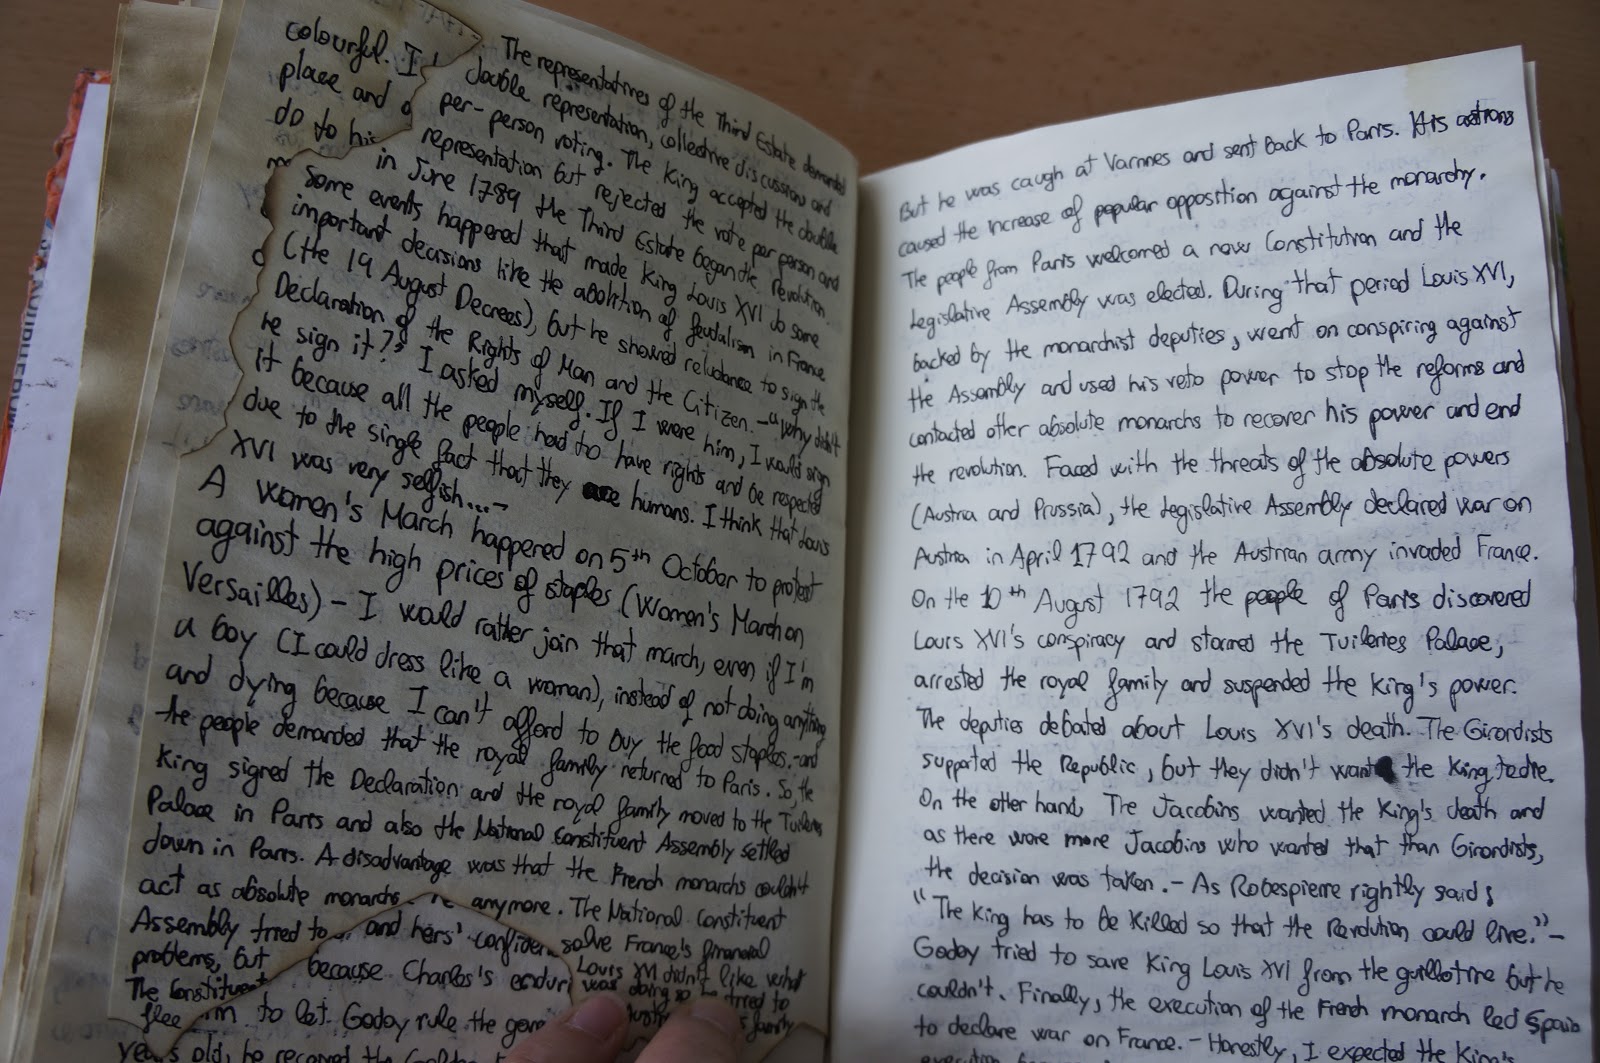 colourful. I
place and
do to his
The representatives of the Third Estate demanded
double representation, collective discussions and
per-person voting. The King accepted the double
representation but rejected the vote per person and
in June 1789 the Third Estate began the Revolution.
Some events happened that made King Louis XVI do some
important decisions like the abolition of feudalism in France
(the 19 August Decrees), but he showed reluctance to sign the
Declaration of the Rights of Man and the Citizen. - "why didn't
he sign it?", I asked myself. If I were him, I would sign
it because all the people had to have rights and be respected
due to the single fact that they are humans. I think that Louis
XVI was very selfish... -
A women's March happened on 5th October to protest
against the high prices of staples (Women's March on
Versailles) - I would rather join that march, even if I'm
a boy (I could dress like a woman), instead of not doing anything
and dying because I can't afford to buy the food staples. - and
the people demanded that the royal family returned to Paris. So, the
King signed the Declaration and the royal family moved to the Tuileries
Palace in Paris and also the National Constituent Assembly settled
down in Paris. A disadvantage was that the French monarchs couldn't
act as absolute monarchs anymore. The National Constituent
Assembly tried to solve France's financial
problems, but Louis XVI didn't like what
The Constituent was doing so he tried to
flee family
and hers' confiden
because Charles's
to let Godoy rule the
years old, he received the
But he was caugh at Varnnes and sent back to Paris. His actions
caused the increase of popular opposition against the monarchy.
The people from Paris welcomed a new Constitution and the
Legislative Assembly was elected. During that period Louis XVI,
backed by the monarchist deputies, went on conspiring against
the Assembly and used his veto power to stop the reforms and
contacted other absolute monarchs to recover his power and end
the revolution. Faced with the threats of the absolute powers
(Austria and Prussia), the Legislative Assembly declared war on
Austria in April 1792 and the Austrian army invaded France.
On the 10th August 1792 the people of Paris discovered
Louis XVI's conspiracy and stormed the Tuileries Palace,
arrested the royal family and suspended the King's power.
The deputies debated about Louis XVI's death. The Girondists
supported the Republic, but they didn't want the King to die.
On the other hand, The Jacobins wanted the King's death and
as there were more Jacobins who wanted that than Girondists,
the decision was taken. - As Robespierre rightly said:
"The King has to be killed so that the Revolution could live." -
Godoy tried to save King Louis XVI from the guillotine but he
couldn't. Finally, the execution of the French monarch led Spain
to declare war on France. - Honestly, I expected the King's